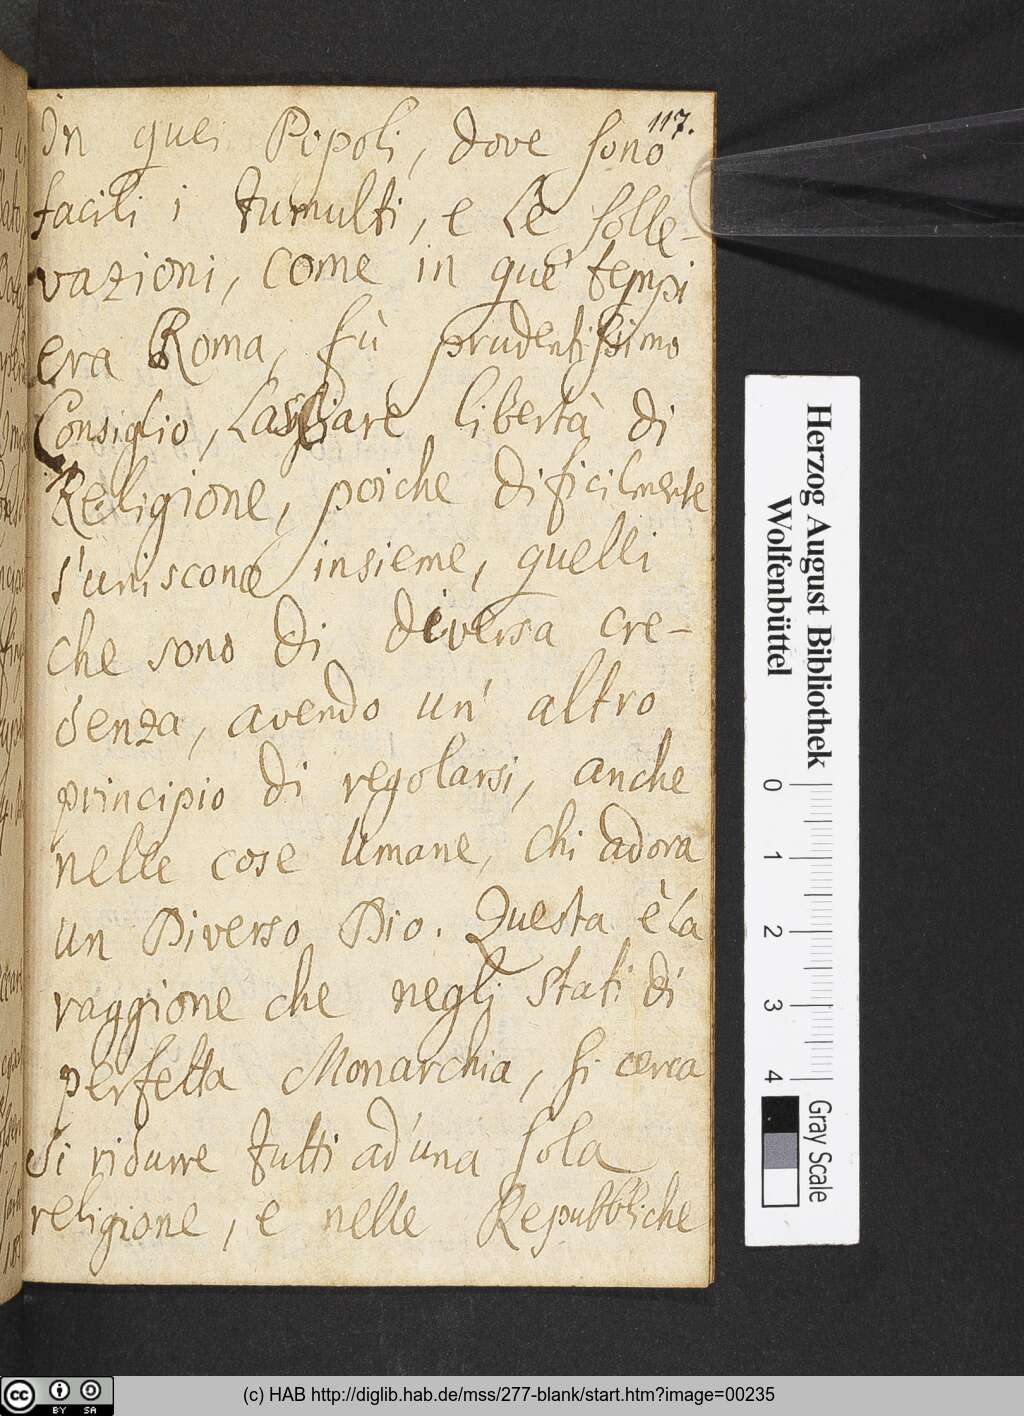 117.
In quei Popoli, dove sono
facili i tumulti, e le solle-
vazioni, come in què tempi
era Roma, fù prudentissimo
Consiglio, Lasciare libertà di
Religione, poiche dificilmente
s'uniscono insieme, quelli
che sono di diversa cre-
denza, avendo un' altro
principio di regolarsi, anche
nelle cose umane, chi adora
un Diverso Dio. Questa è la
raggione che negli stati di
perfetta Monarchia, si cerca
di ridurre tutti ad'una sola
religione, e nelle Repubbliche
Herzog August Bibliothek
Wolfenbüttel
0 1 2 3 4
Gray Scale
cc BY SA
(c) HAB http://diglib.hab.de/mss/277-blank/start.htm?image=00235